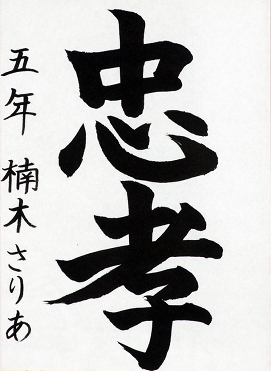 忠孝
五年 楠木さりあ